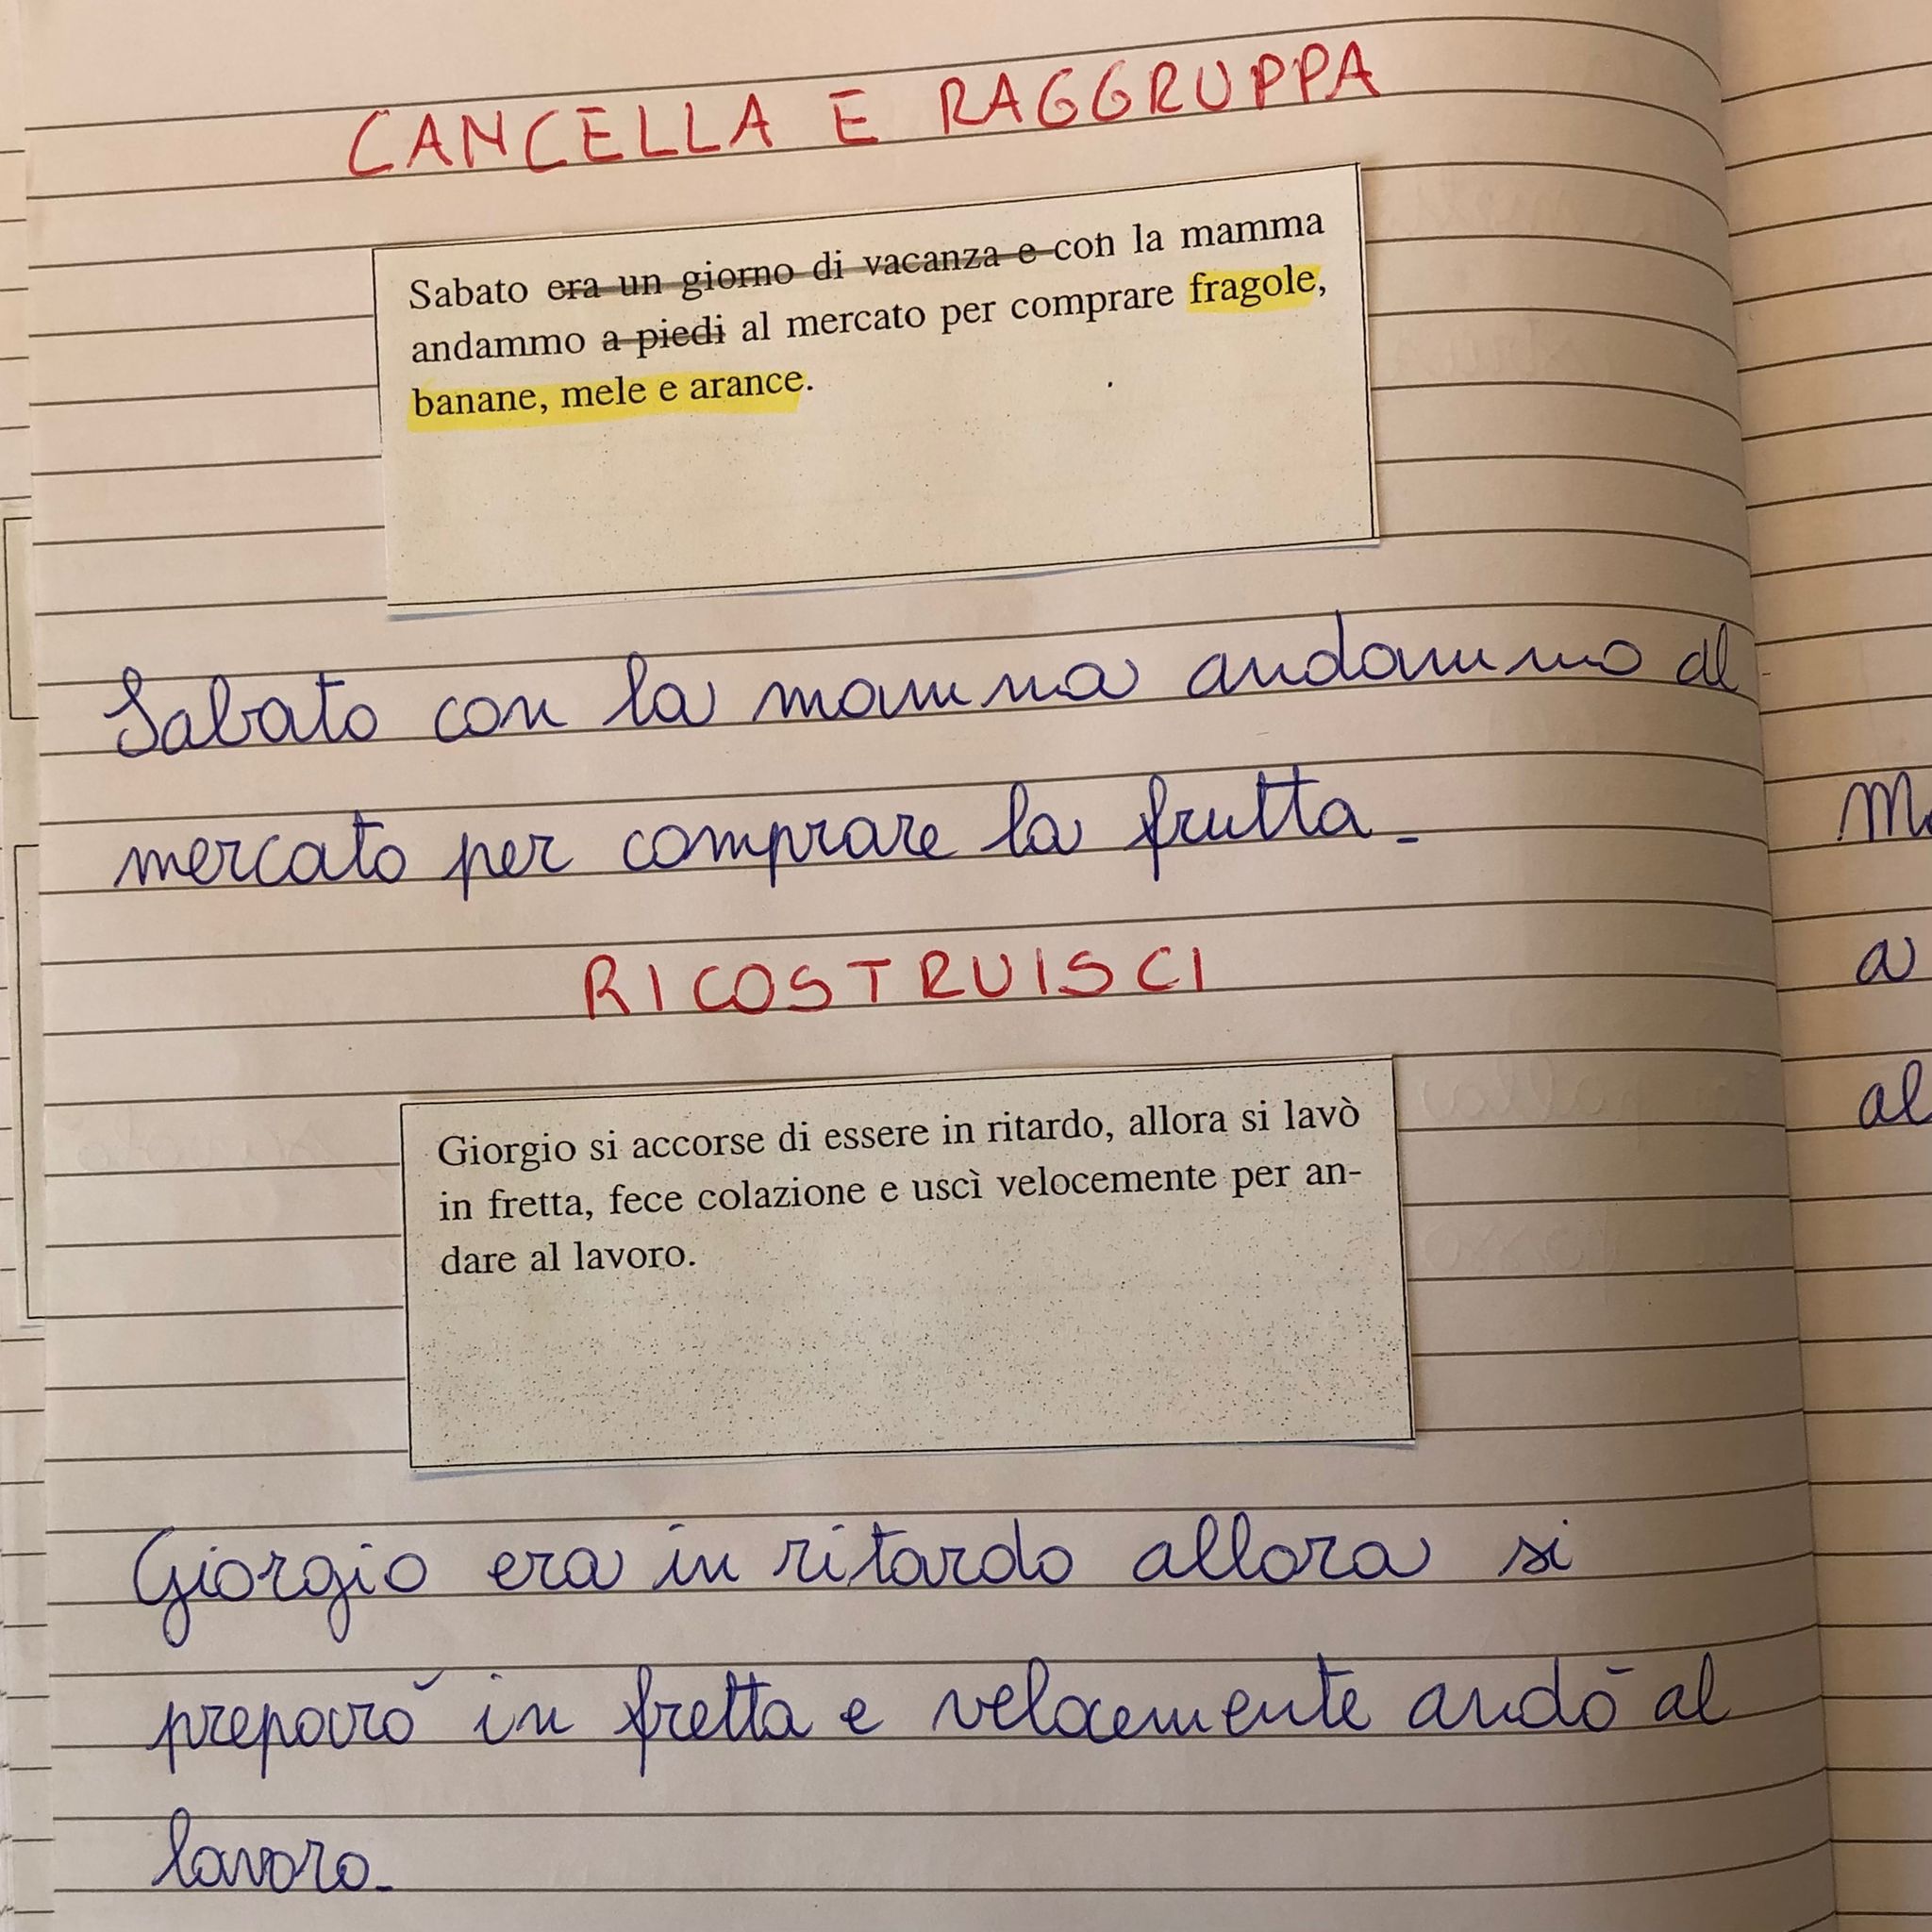 CANCELLA E RAGGRUPPA
Sabato era un giorno di vacanza e con la mamma
andammo a piedi al mercato per comprare fragole,
banane, mele e arance.
Sabato con la mamma andammo al
mercato per comprare la frutta.
RICOSTRUISCI
Giorgio si accorse di essere in ritardo, allora si lavò
in fretta, fece colazione e uscì velocemente per an-
dare al lavoro.
Giorgio era in ritardo allora si
preparò in fretta e velocemente andò al
lavoro.
a
al